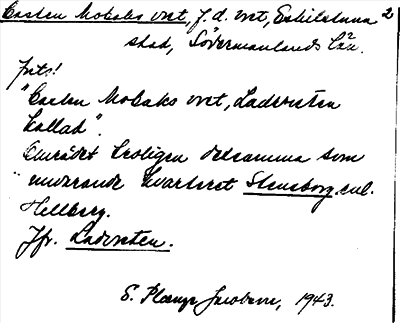 Carsten Mobaks vret, f. d. vret, Eskilstuna 2
stad, Södermanlands län.
"Carsten Mobaks vret, Ladvreten
kallad".
Området troligen detsamma som
nuvarande kvarteret Stensborg enl.
Hellberg.
Jfr. Ladvreten.
S. Plænge Jacobson, 1943.